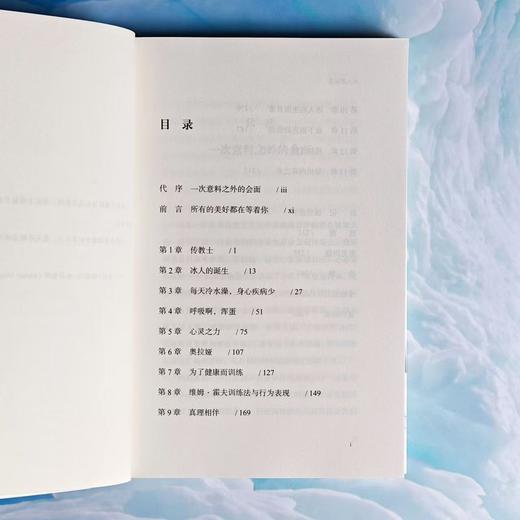 目 录
代 序 一次意料之外的会面 / iii
前 言 所有的美好都在等着你 / xi
第 1 章 传教士 / 1
第 2 章 冰人的诞生 / 13
第 3 章 每天冷水澡，身心疾病少 / 27
第 4 章 呼吸啊，浑蛋 / 51
第 5 章 心灵之力 / 75
第 6 章 奥拉娅 / 107
第 7 章 为了健康而训练 / 127
第 8 章 维姆·霍夫训练法与行为表现 / 149
第 9 章 真理相伴 / 169
i